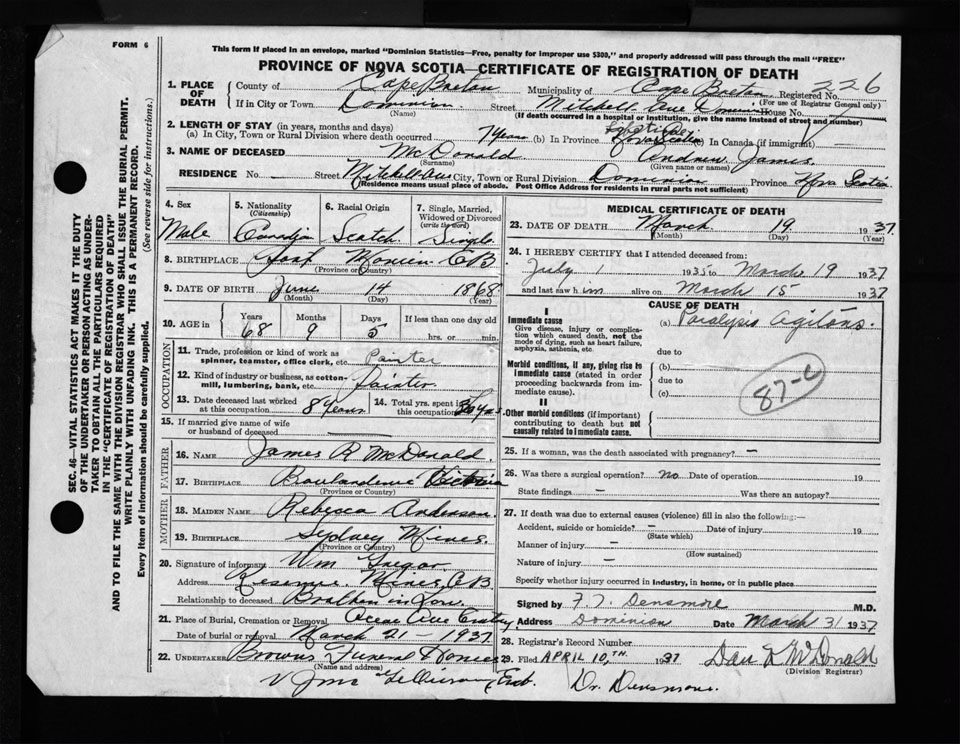 FORM 6
This form if placed in an envelope, marked "Dominion Statistics—Free, penalty for improper use $300," and properly addressed will pass through the mail "FREE"
PROVINCE OF NOVA SCOTIA—CERTIFICATE OF REGISTRATION OF DEATH
1. PLACE OF DEATH County of Cape Breton Municipality of Cape Breton Registered No. 226
(For use of Registrar General only)
If in City or Town Dominion Street Mitchell Ave Dominion House No.
(Name) (If death occurred in a hospital or institution, give the name instead of street and number)
2. LENGTH OF STAY (in years, months and days)
(a) In City, Town or Rural Division where death occurred 7 years (b) In Province Lifetime Nova Scotia (c) In Canada (if immigrant)
3. NAME OF DECEASED McDonald Andrew James
(Surname) (Given name or names)
RESIDENCE No. Street Mitchell Ave City, Town or Rural Division Dominion Province Nova Scotia
(Residence means usual place of abode. Post Office Address for residents in rural parts not sufficient)
4. Sex 5. Nationality (Citizenship) 6. Racial Origin 7. Single, Married, Widowed or Divorced (write the word)
Male Scotch Single
8. BIRTHPLACE Port Morien C B
(Province or Country)
9. DATE OF BIRTH June 14 1868
(Month) (Day) (Year)
10. AGE in Years Months Days If less than one day old
68 9 5 hrs. or min.
OCCUPATION
11. Trade, profession or kind of work as spinner, teamster, office clerk, etc. Painter
12. Kind of industry or business, as cotton-mill, lumbering, bank, etc. Painter
13. Date deceased last worked at this occupation 8 years 14. Total yrs. spent in this occupation
15. If married give name of wife or husband of deceased
FATHER
16. NAME James R McDonald
17. BIRTHPLACE Victoria
(Province or Country)
MOTHER
18. MAIDEN NAME Rebecca Anderson
19. BIRTHPLACE Sydney Mines
(Province or Country)
20. Signature of informant Wm
Address Reserve Mines, C B
Relationship to deceased Brother in Law
21. Place of Burial, Cremation or Removal Ocean Ave
Date of burial or removal March 21 – 1937
22. UNDERTAKER Browns Funeral Homes
(Name and address)
MEDICAL CERTIFICATE OF DEATH
23. DATE OF DEATH March 19 1937
(Month) (Day) (Year)
24. I HEREBY CERTIFY that I attended deceased from:
July 1 1935 to March 19 1937
and last saw him alive on March 15 1937
CAUSE OF DEATH
I
Immediate cause (a) Paralysis Agitans.
Give disease, injury or complication which caused death, not the mode of dying, such as heart failure, asphyxia, asthenia, etc.
due to
Morbid conditions, if any, giving rise to immediate cause (stated in order proceeding backwards from immediate cause). (b)
due to
(c)
87-c
II
Other morbid conditions (if important) contributing to death but not causally related to immediate cause.
25. If a woman, was the death associated with pregnancy? —
26. Was there a surgical operation? no Date of operation 19
State findings – Was there an autopsy?
27. If death was due to external causes (violence) fill in also the following:—
Accident, suicide or homicide? – Date of injury 19
(State which)
Manner of injury –
(How sustained)
Nature of injury –
Specify whether injury occurred in industry, in home, or in public place
Signed by F. T. Densmore M.D.
Address Dominion Date March 31 1937
28. Registrar's Record Number
29. Filed APRIL 10, TH. 1937 Dan McDonald
(Division Registrar)
Dr. Densmore.
SEC. 46—VITAL STATISTICS ACT MAKES IT THE DUTY
OF THE UNDERTAKER OR PERSON ACTING AS UNDER-
TAKER TO OBTAIN ALL THE PARTICULARS REQUIRED
IN THE "CERTIFICATE OF REGISTRATION OF DEATH"
AND TO FILE THE SAME WITH THE DIVISION REGISTRAR WHO SHALL ISSUE THE BURIAL PERMIT.
WRITE PLAINLY WITH UNFADING INK. THIS IS A PERMANENT RECORD.
Every item of information should be carefully supplied. (See reverse side for instructions.)